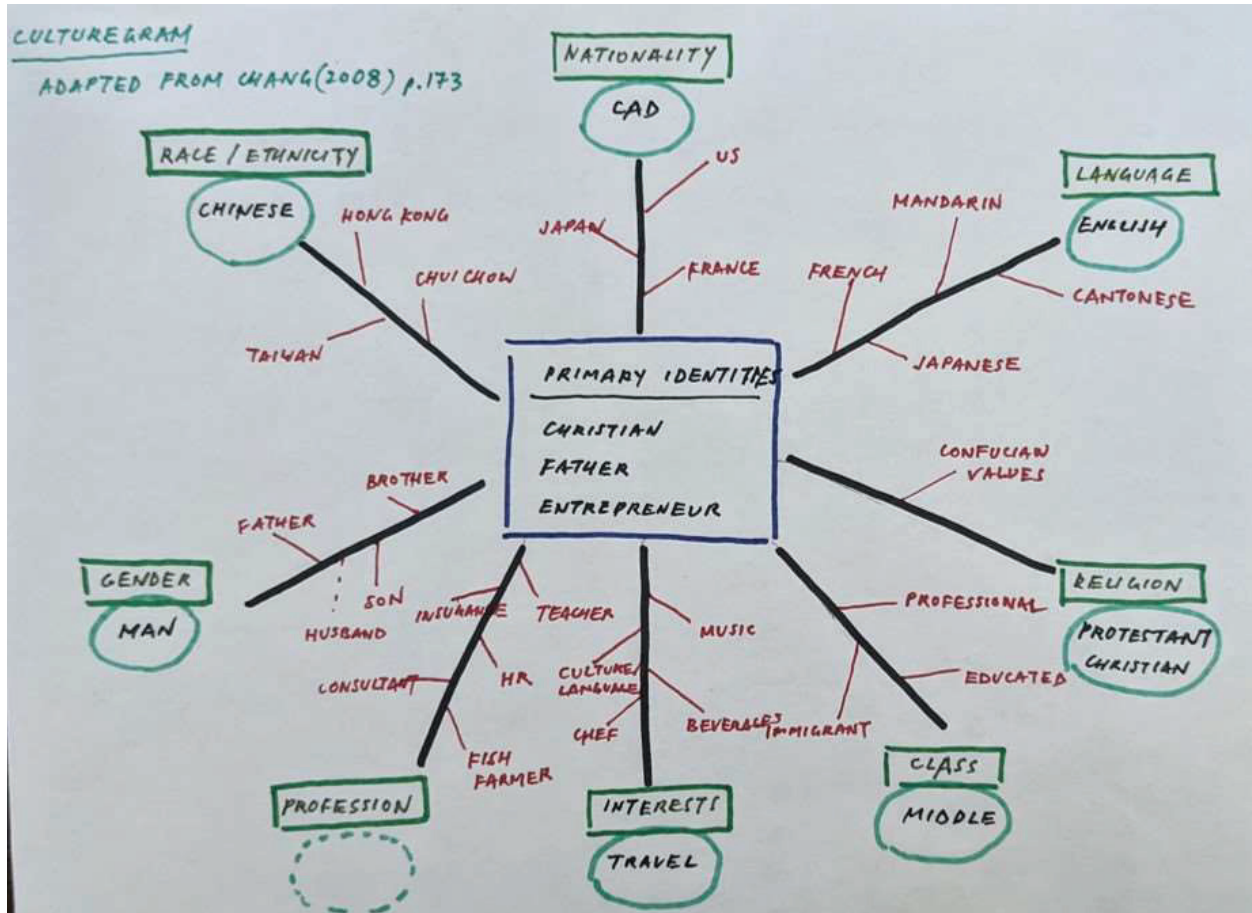 CULTUREGRAM
ADAPTED FROM CHANG (2008) p.173
NATIONALITY
CAD
US
JAPAN
FRANCE
RACE / ETHNICITY
CHINESE
HONG KONG
CHUI CHOW
TAIWAN
LANGUAGE
ENGLISH
MANDARIN
FRENCH
CANTONESE
JAPANESE
PRIMARY IDENTITIES
CHRISTIAN
FATHER
ENTREPRENEUR
BROTHER
FATHER
SON
HUSBAND
GENDER
MAN
CONFUCIAN
VALUES
RELIGION
PROTESTANT
CHRISTIAN
INSURANCE
TEACHER
CONSULTANT
HR
FISH
FARMER
PROFESSION
MUSIC
CULTURE/
LANGUAGE
BEVERAGES
CHEF
INTERESTS
TRAVEL
PROFESSIONAL
EDUCATED
IMMIGRANT
CLASS
MIDDLE